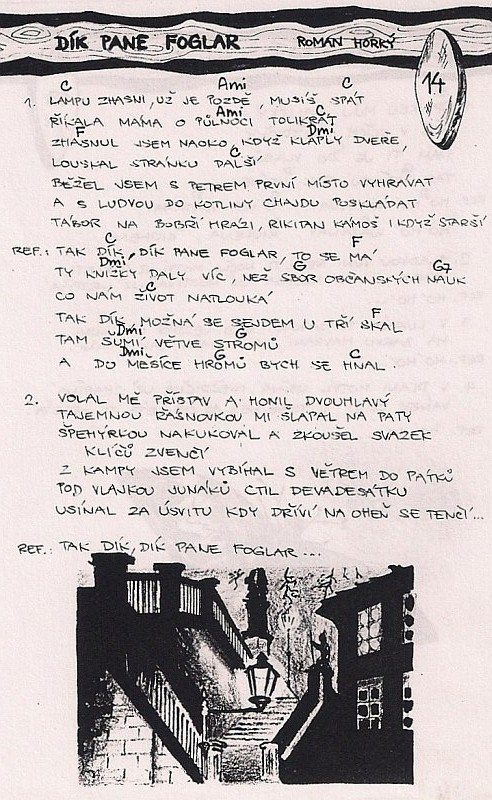 DÍK PANE FOGLAR
ROMAN HORKÝ
14
C Ami C
1. LAMPU ZHASNI, UŽ JE POZDĚ, MUSÍŠ SPÁT
Ami C
ŘÍKALA MÁMA O PŮLNOCI TOLIKRÁT
F Dmi
ZHASNUL JSEM NAOKO KDYŽ KLAPLY DVEŘE,
C
LOUSKAL STRÁNKU DALŠÍ
BĚŽEL JSEM S PETREM PRVNÍ MÍSTO VYHRÁVAT
A S LUDVOU DO KOTLINY CHAJDU POSKLÁDAT
TÁBOR NA BOBŘÍ HRÁZI, RIKITAN KÁMOŠ I KDYŽ STARŠÍ
C F
REF.: TAK DÍK, DÍK PANE FOGLAR, TO SE MÁ
Dmi G G7
TY KNÍŽKY DALY VÍC, NEŽ SBOR OBČANSKÝCH NAUK
C
CO NÁM ŽIVOT NATLOUKÁ
F
TAK DÍK, MOŽNÁ SE SEJDEM U TŘÍ SKAL
Dmi G
TAM ŠUMÍ VĚTVE STROMŮ
Dmi G C
A DO MĚSÍCE HROMŮ BYCH SE HNAL.
2. VOLAL MĚ PŘÍSTAV A HONIL DVOUHLAVÝ
TAJEMNOU ŘÁSNOVKOU MI ŠLAPAL NA PATY
ŠPEHÝRKOU NAKUKOVAL A ZKOUŠEL SVAZEK
KLÍČŮ ZVENČÍ
Z KAMPY JSEM VYBÍHAL S VĚTREM DO PÁTKŮ
POD VLAJKOU JUNÁKŮ CTIL DEVADESÁTKU
USÍNAL ZA ÚSVITU KDY DŘÍVÍ NA OHEŇ SE TENČÍ...
REF.: TAK DÍK, DÍK PANE FOGLAR...